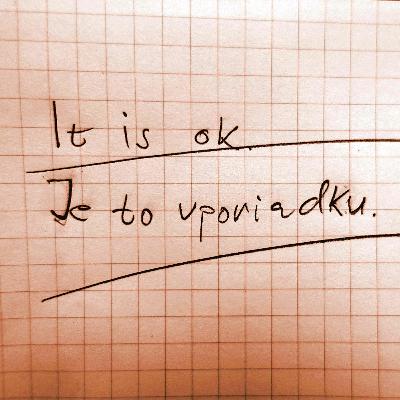 It is ok.
Je to vporiadku.